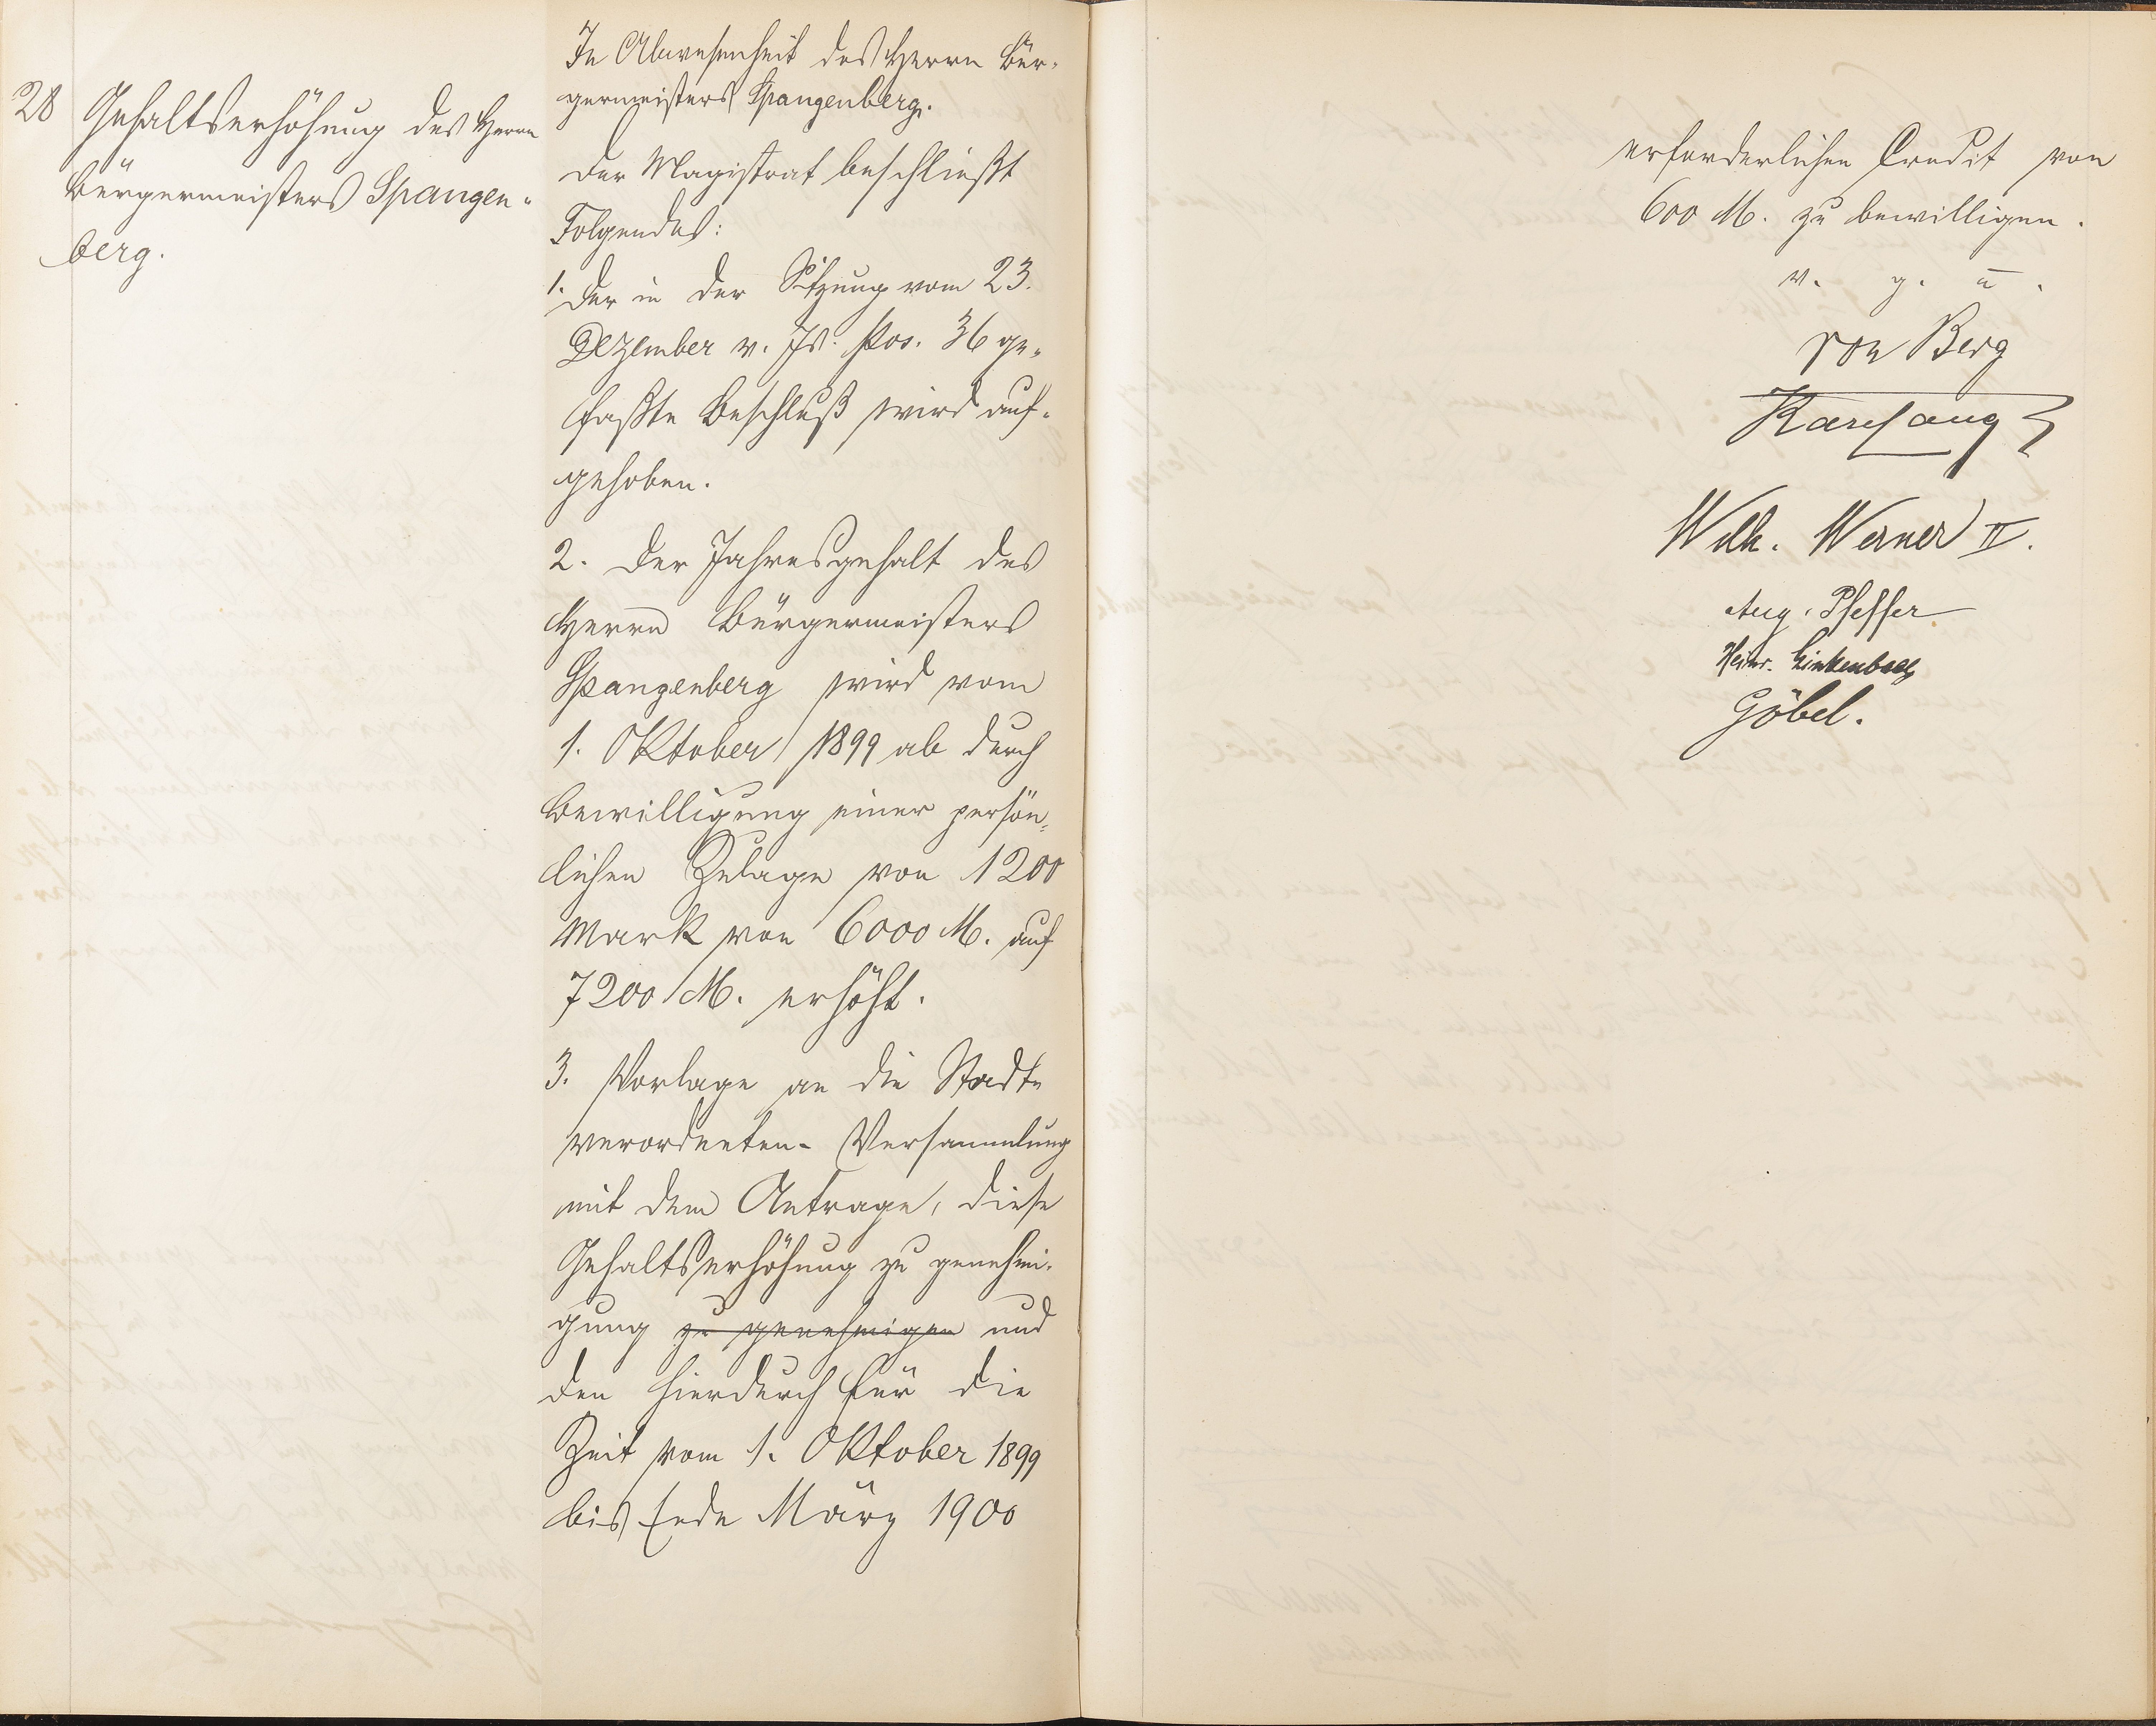 28 Gehaltserhöhung des Herrn
Bürgermeisters Spangen-
berg.
In Abwesenheit des Herrn Bür-
germeisters Spangenberg.
Der Magistrat beschließt
Folgendes:
1. Der in der Sitzung vom 23.
Dezember v. Js. Pos. 36 ge-
faßte Beschluß wird auf-
gehoben.
2. Der Jahresgehalt des
Herrn Bürgermeisters
Spangenberg wird vom
1. Oktober 1899 ab durch
Bewilligung einer persön-
lichen Zulage von 1200
Mark von 6000 M. auf
7200 M. erhöht.
3. Vorlage an die Stadt-
verordneten-Versammlung
mit dem Antrage, diese
Gehaltserhöhung zu genehmi-
gung zu genehmigen und
den hierdurch für die
Zeit vom 1. Oktober 1899
bis Ende März 1900
erforderlichen Credit von
600 M. zu bewilligen.
v. g. u.
von Berg
Karl Lang
Wilh. Werner II.
Aug. Pfeffer
Heinr. Linkenbach
Göbel.